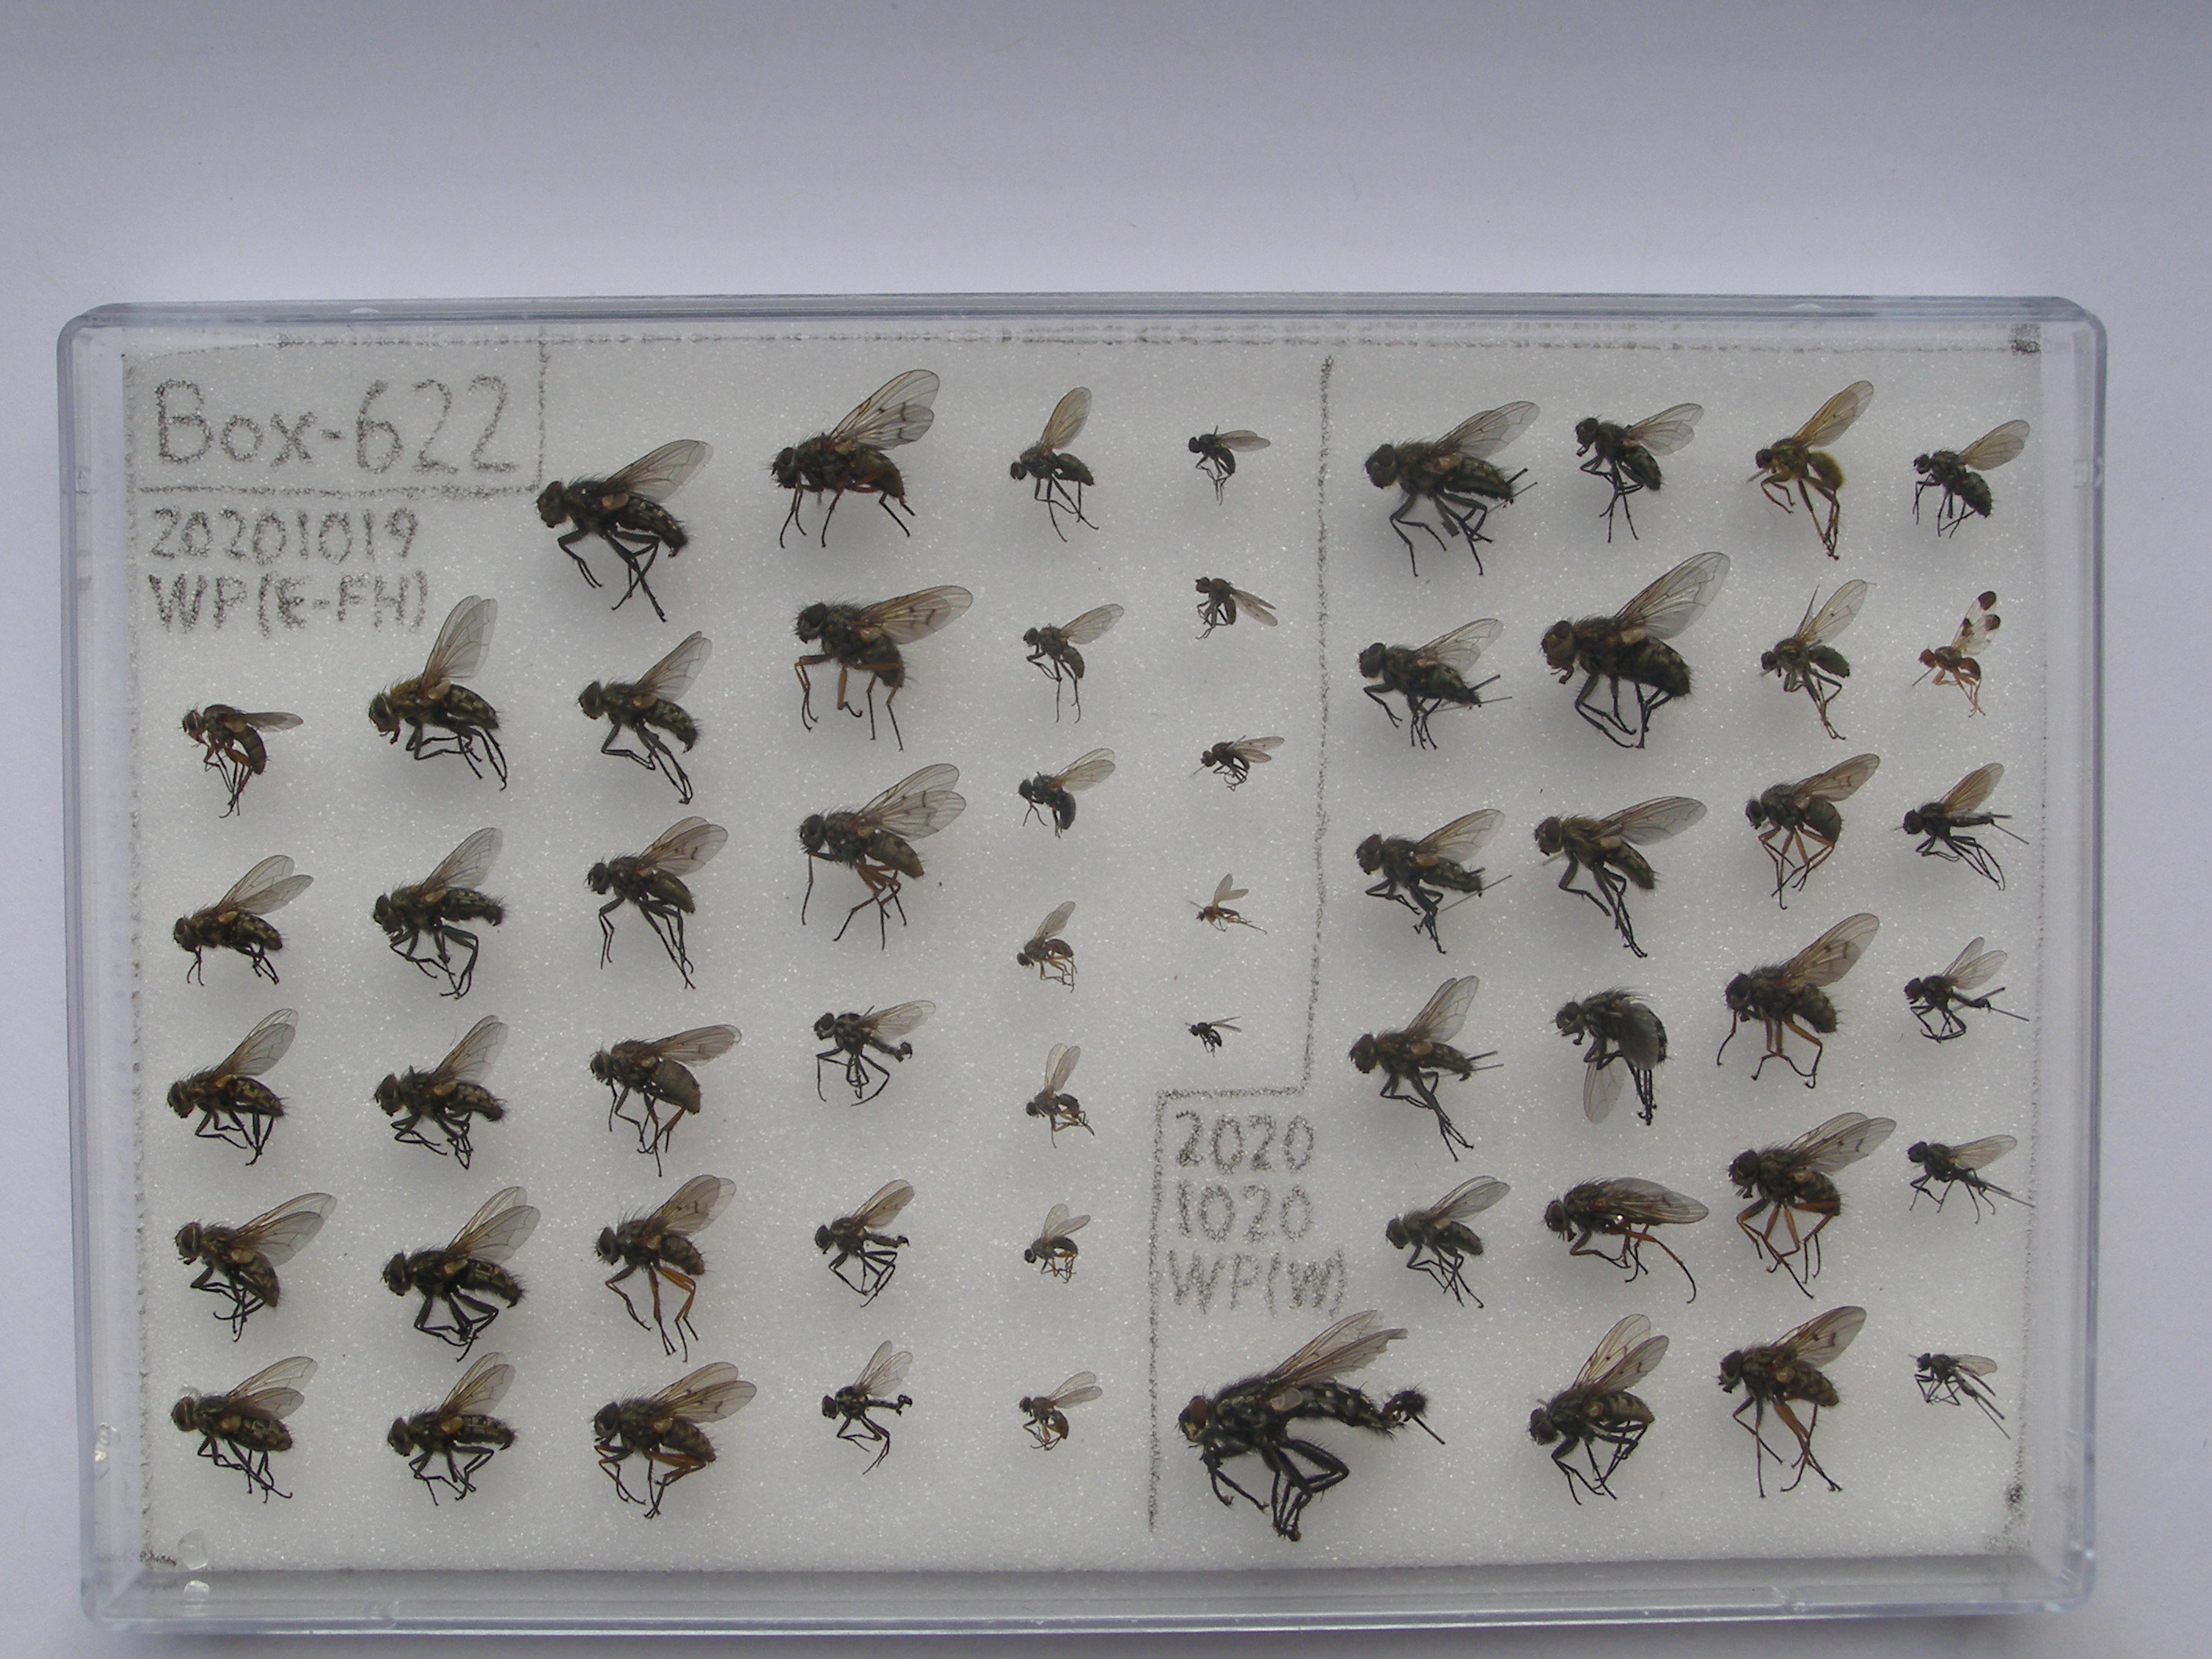 Box-622
20201019
WP(E-FH)
2020
1020
WP(W)